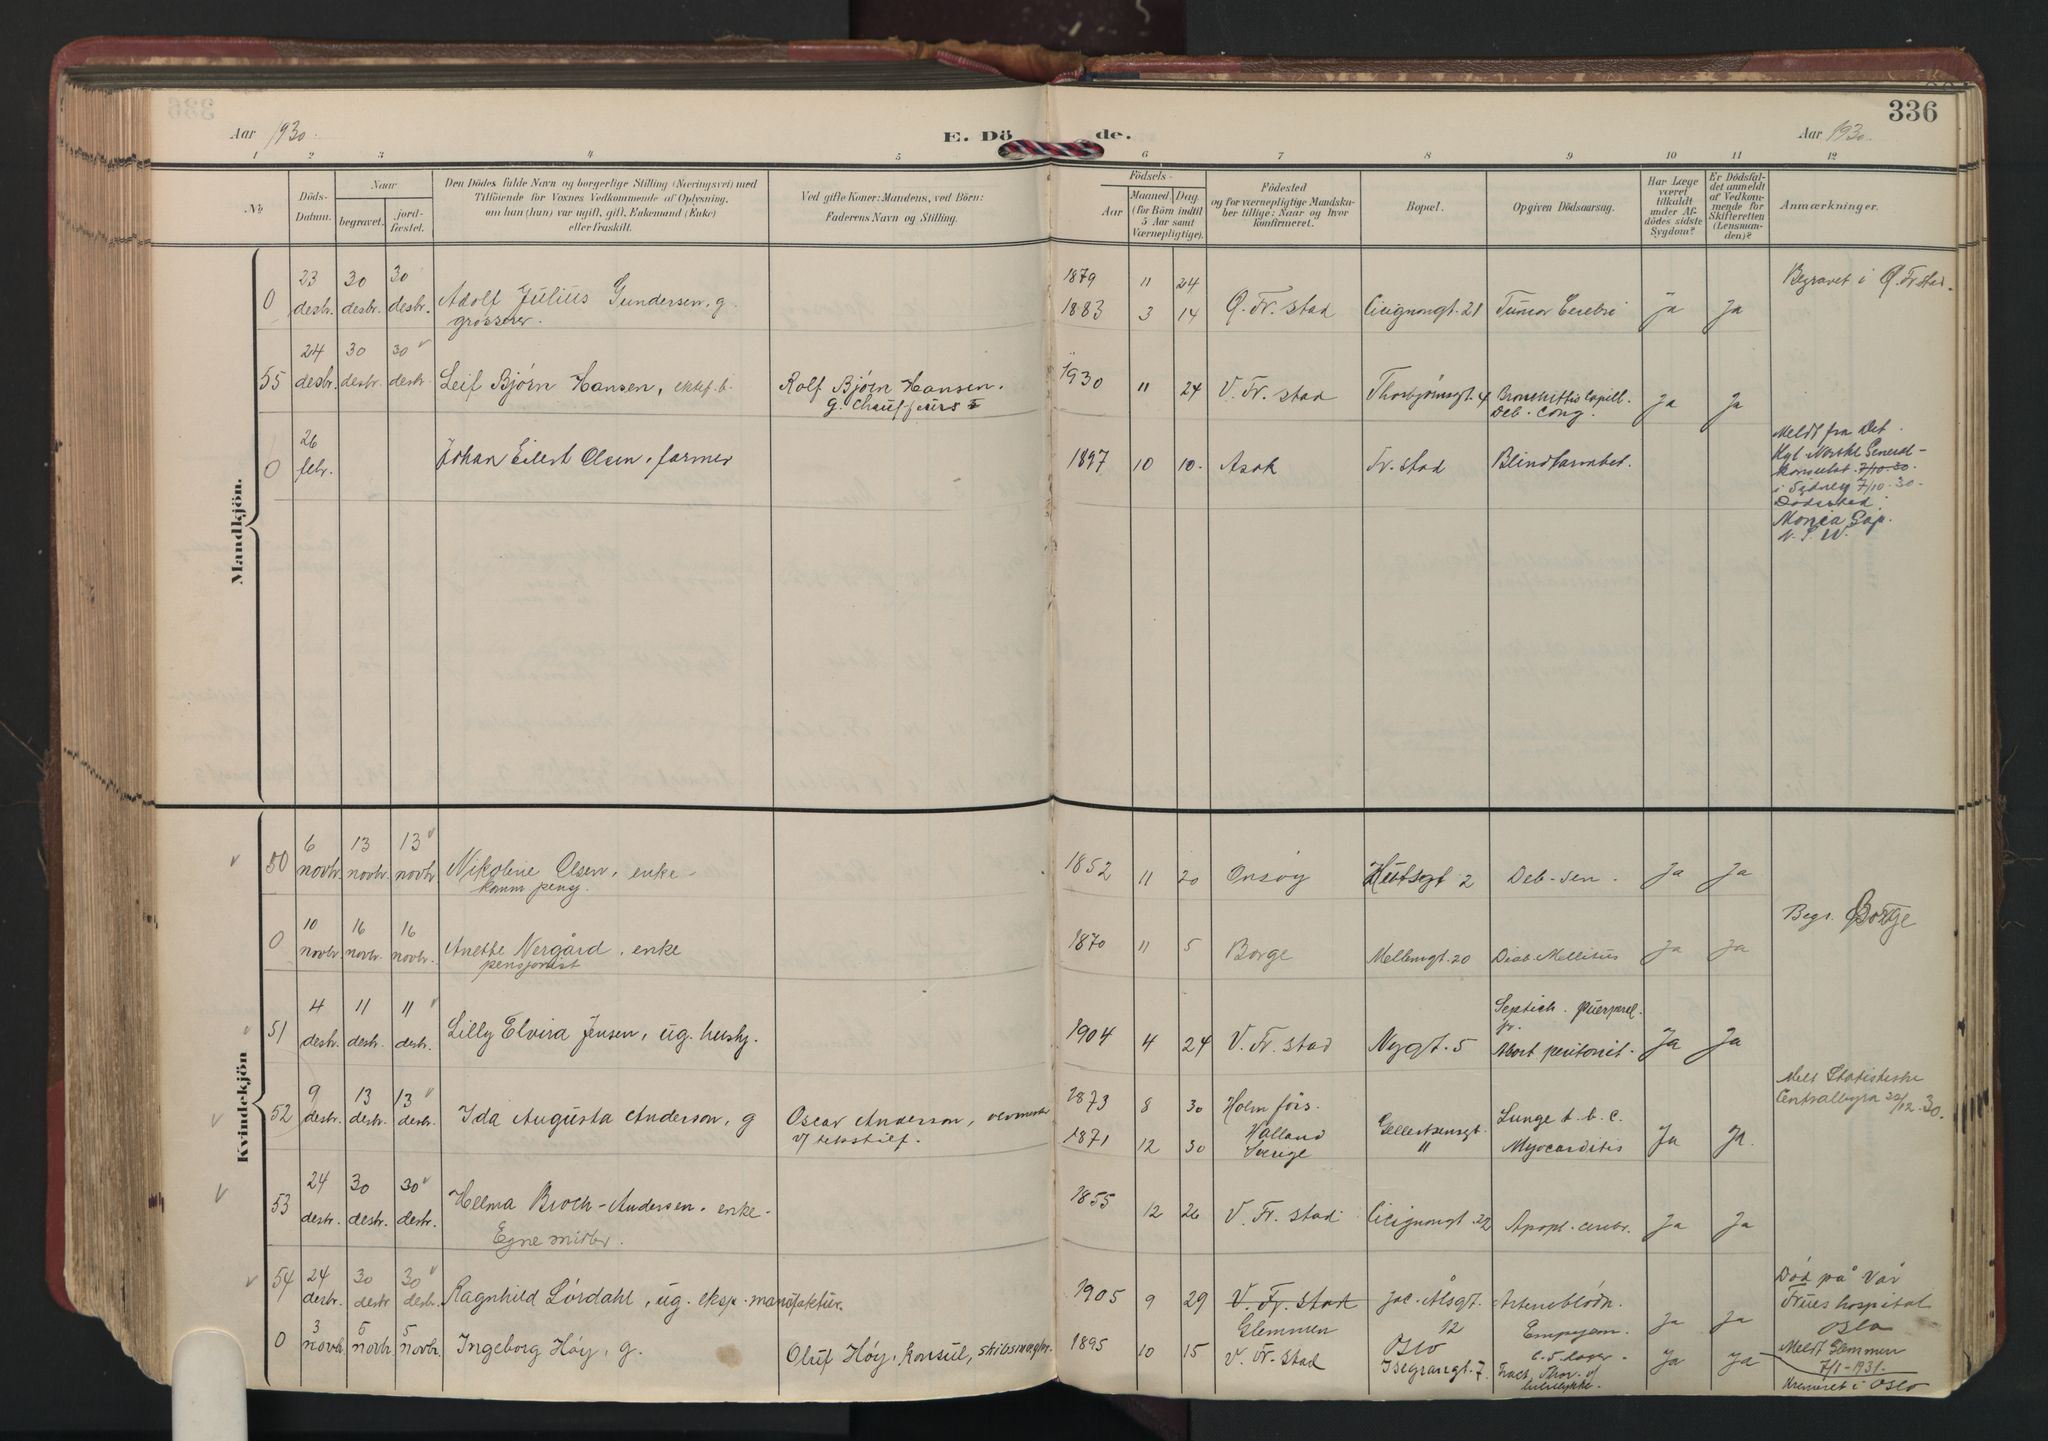 336
Aar 1930.
E. Dö de.
Aar 1930.
1 2 3 4 5 6 7 8 9 10 11 12
No
Döds-
Datum.
Naar
begravet.
jord-
fæstet.
Den Dödes fulde Navn og borgerlige Stilling (Næringsvei) med
Tilföiende for Voxnes Vedkommende af Oplysning,
om han (hun) var ugift, gift, Enkemand (Enke)
eller fraskilt.
Ved gifte Koner: Mandens, ved Börn:
Faderens Navn og Stilling.
Födsels-
Aar
Maaned Dag.
(for Börn indtil
5 Aar samt
Værnepligtige).
Födested
og for værnepligtige Mandska-
ber tillige: Naar og hvor
konfirmeret.
Bopæl.
Opgiven Dödsaarsag.
Har Læge
været
tilkaldt
under Af-
dödes sidste
Sygdom?
Er Dödsfal-
det anmeldt
af Vedkom-
mende for
Skifteretten
(Lensman-
den)?
Anmærkninger.
Mandkjön.
23 30 30 1879 11 24 Begravet i Q. Fr.stad.
0 desbr. desbr. desbr. Adolf Julius Gundersen, g. 1883 3 14 Q. Fr. stad Cicignongt. 21 Tumor Cerebri ja Ja
grosserer.
24 30 30
55 desbr. desbr. desbr. Leif Bjørn Hansen, ektef. b. Rolf Bjørn Hansen. 1930 11 24 V. Fr. stad Thorbjørnsgt. 4 Bronchittis capill. Ja Ja
g. Chauffeurs Deb. cong.
26 Meldt fra Det
0 febr. Johan Eilert Olsen, farmer 1897 10 10. Asak Fr. stad Blindtarmbet. Kgl Norske General-
konsulat 7/10-30.
i Sydney 7/10.30.
Dødssted
Monica Gap.
N. S. W.
Kvindekjön
6 13 13
50 novbr. novbr. novbr. Nikoline Olsen, enke- 1852 11 20 Onsøy 2 Deb. sen. Ja Ja
komm pensj.
10 16 16 Begr. Borge
0 novbr. novbr. novbr. Anette Nergård, enke 1870 11 5 Borge Mellemgt. 20 Diab. Mellitus Ja Ja
pensjonist
4 11 11 Septich. puerperal.
51 desbr. desbr. desbr. Lilly Elvira Jensen, ug. hushj. 1904 4 24 V. Fr. stad Nygt. 5 Abort peritonit. Ja Ja
9 13 13 1873 8 30 Holm förs. Lunge t. b. c. Melt Statistiske
52 desbr. desbr. desbr. Ida Augusta Anderson, g Oscar Anderson, Halland Gellertsensgt. Centralbyrå 22/12.30.
v/ tekstilf. 1871 12 30 Sverige " Myocarditis Ja Ja.
24 30 30
53 desbr. desbr. desbr. Helma Broch-Andersen, enke- 1855 12 26 V. Fr. stad Cicignongt. 22 Apopl. cerebr. Ja Ja
Egne midler.
54 24 30 30 Død på Vår
desbr. desbr desbr. Ragnhild Lørdahl, ug. eksp. manufaktur. 1905 9 29 V. Fr. stad Jac. Ålsgt. Arterieblødn. Frues hospital
Glemmen 12 Empyem. Ja Ja Oslo
0 3 5 5
novbr. novbr. novbr. Ingeborg Høy, g. Oluf Høy, Konsul, skibsmegler. 1895 10 15 V. Fr. stad Oslo Ja Ja Meldt Glemmen
Isegrangt. 7. 7/1-1931.
Kremeret i Oslo